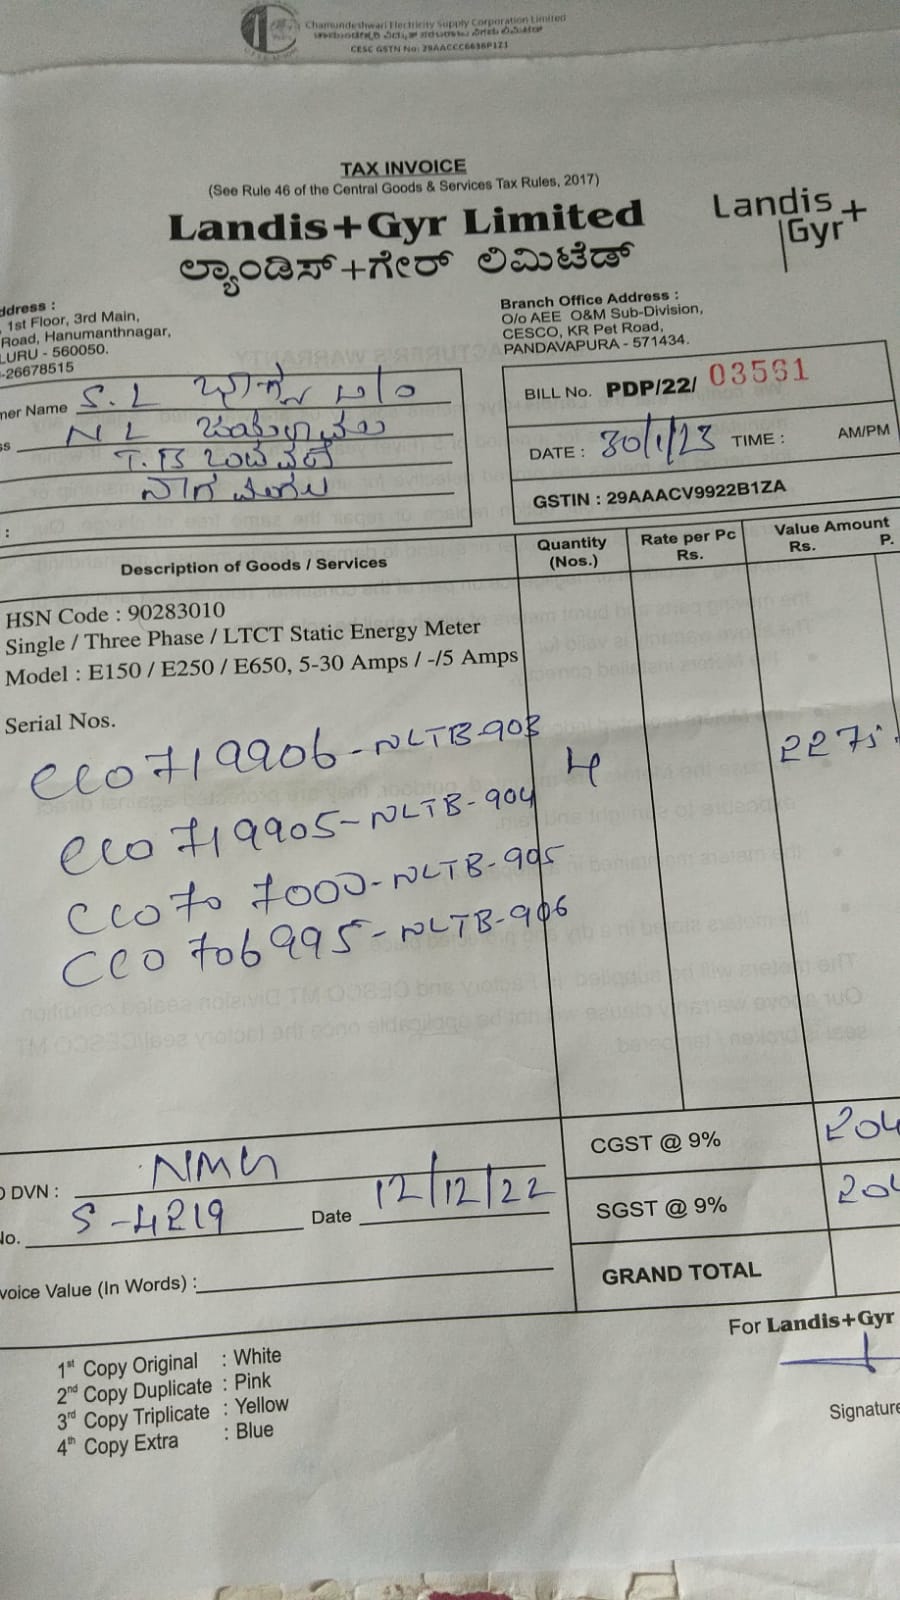 Chamundeshwari Electricity Supply Corporation Limited
CESC GSTN No: 29AACCC6636P1Z1
TAX INVOICE
(See Rule 46 of the Central Goods & Services Tax Rules, 2017)
Landis+Gyr Limited
Landis+
Gyr
ಲ್ಯಾಂಡಿಸ್+ಗೇರ್ ಲಿಮಿಟೆಡ್
ddress :
, 1st Floor, 3rd Main,
Road, Hanumanthnagar,
LURU - 560050.
-26678515
Branch Office Address :
O/o AEE O&M Sub-Division,
CESCO, KR Pet Road,
PANDAVAPURA - 571434.
mer Name S.L
ss N L
T.B
BILL No. PDP/22/ 03561
DATE : 30/1/23 TIME : AM/PM
GSTIN : 29AAACV9922B1ZA
Description of Goods / Services
Quantity
(Nos.)
Rate per Pc
Rs.
Value Amount
Rs. P.
HSN Code : 90283010
Single / Three Phase / LTCT Static Energy Meter
Model : E150 / E250 / E650, 5-30 Amps / -/5 Amps
Serial Nos.
CC0719906-NLTB-903
4
2275
CC0719905-NLTB-904
CC0707000-NLTB-905
CC0706995-NLTB-906
CGST @ 9% 204
SGST @ 9% 204
GRAND TOTAL
DVN : NMG
No. S-4219 Date 12/12/22
voice Value (In Words) :
For Landis+Gyr
Signature
1st Copy Original : White
2nd Copy Duplicate : Pink
3rd Copy Triplicate : Yellow
4th Copy Extra : Blue